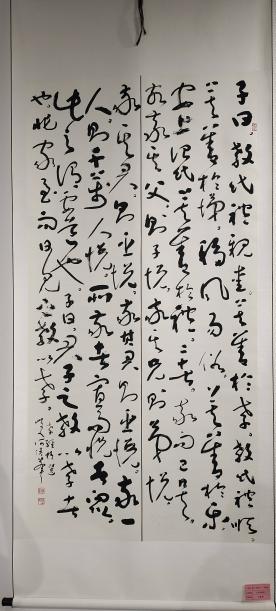 子曰教民禮親愛莫善於孝教民禮順
莫善於悌移風易俗莫善於樂
安上治民莫善於禮禮者敬而已矣
故敬其父則子悅敬其兄則弟悅
敬其君則臣悅敬其君則臣悅敬一
人則千萬人悅所敬者寡而悅者眾
此之謂要道也子曰君子之教以孝
也非家至而日見之教以孝
孝經